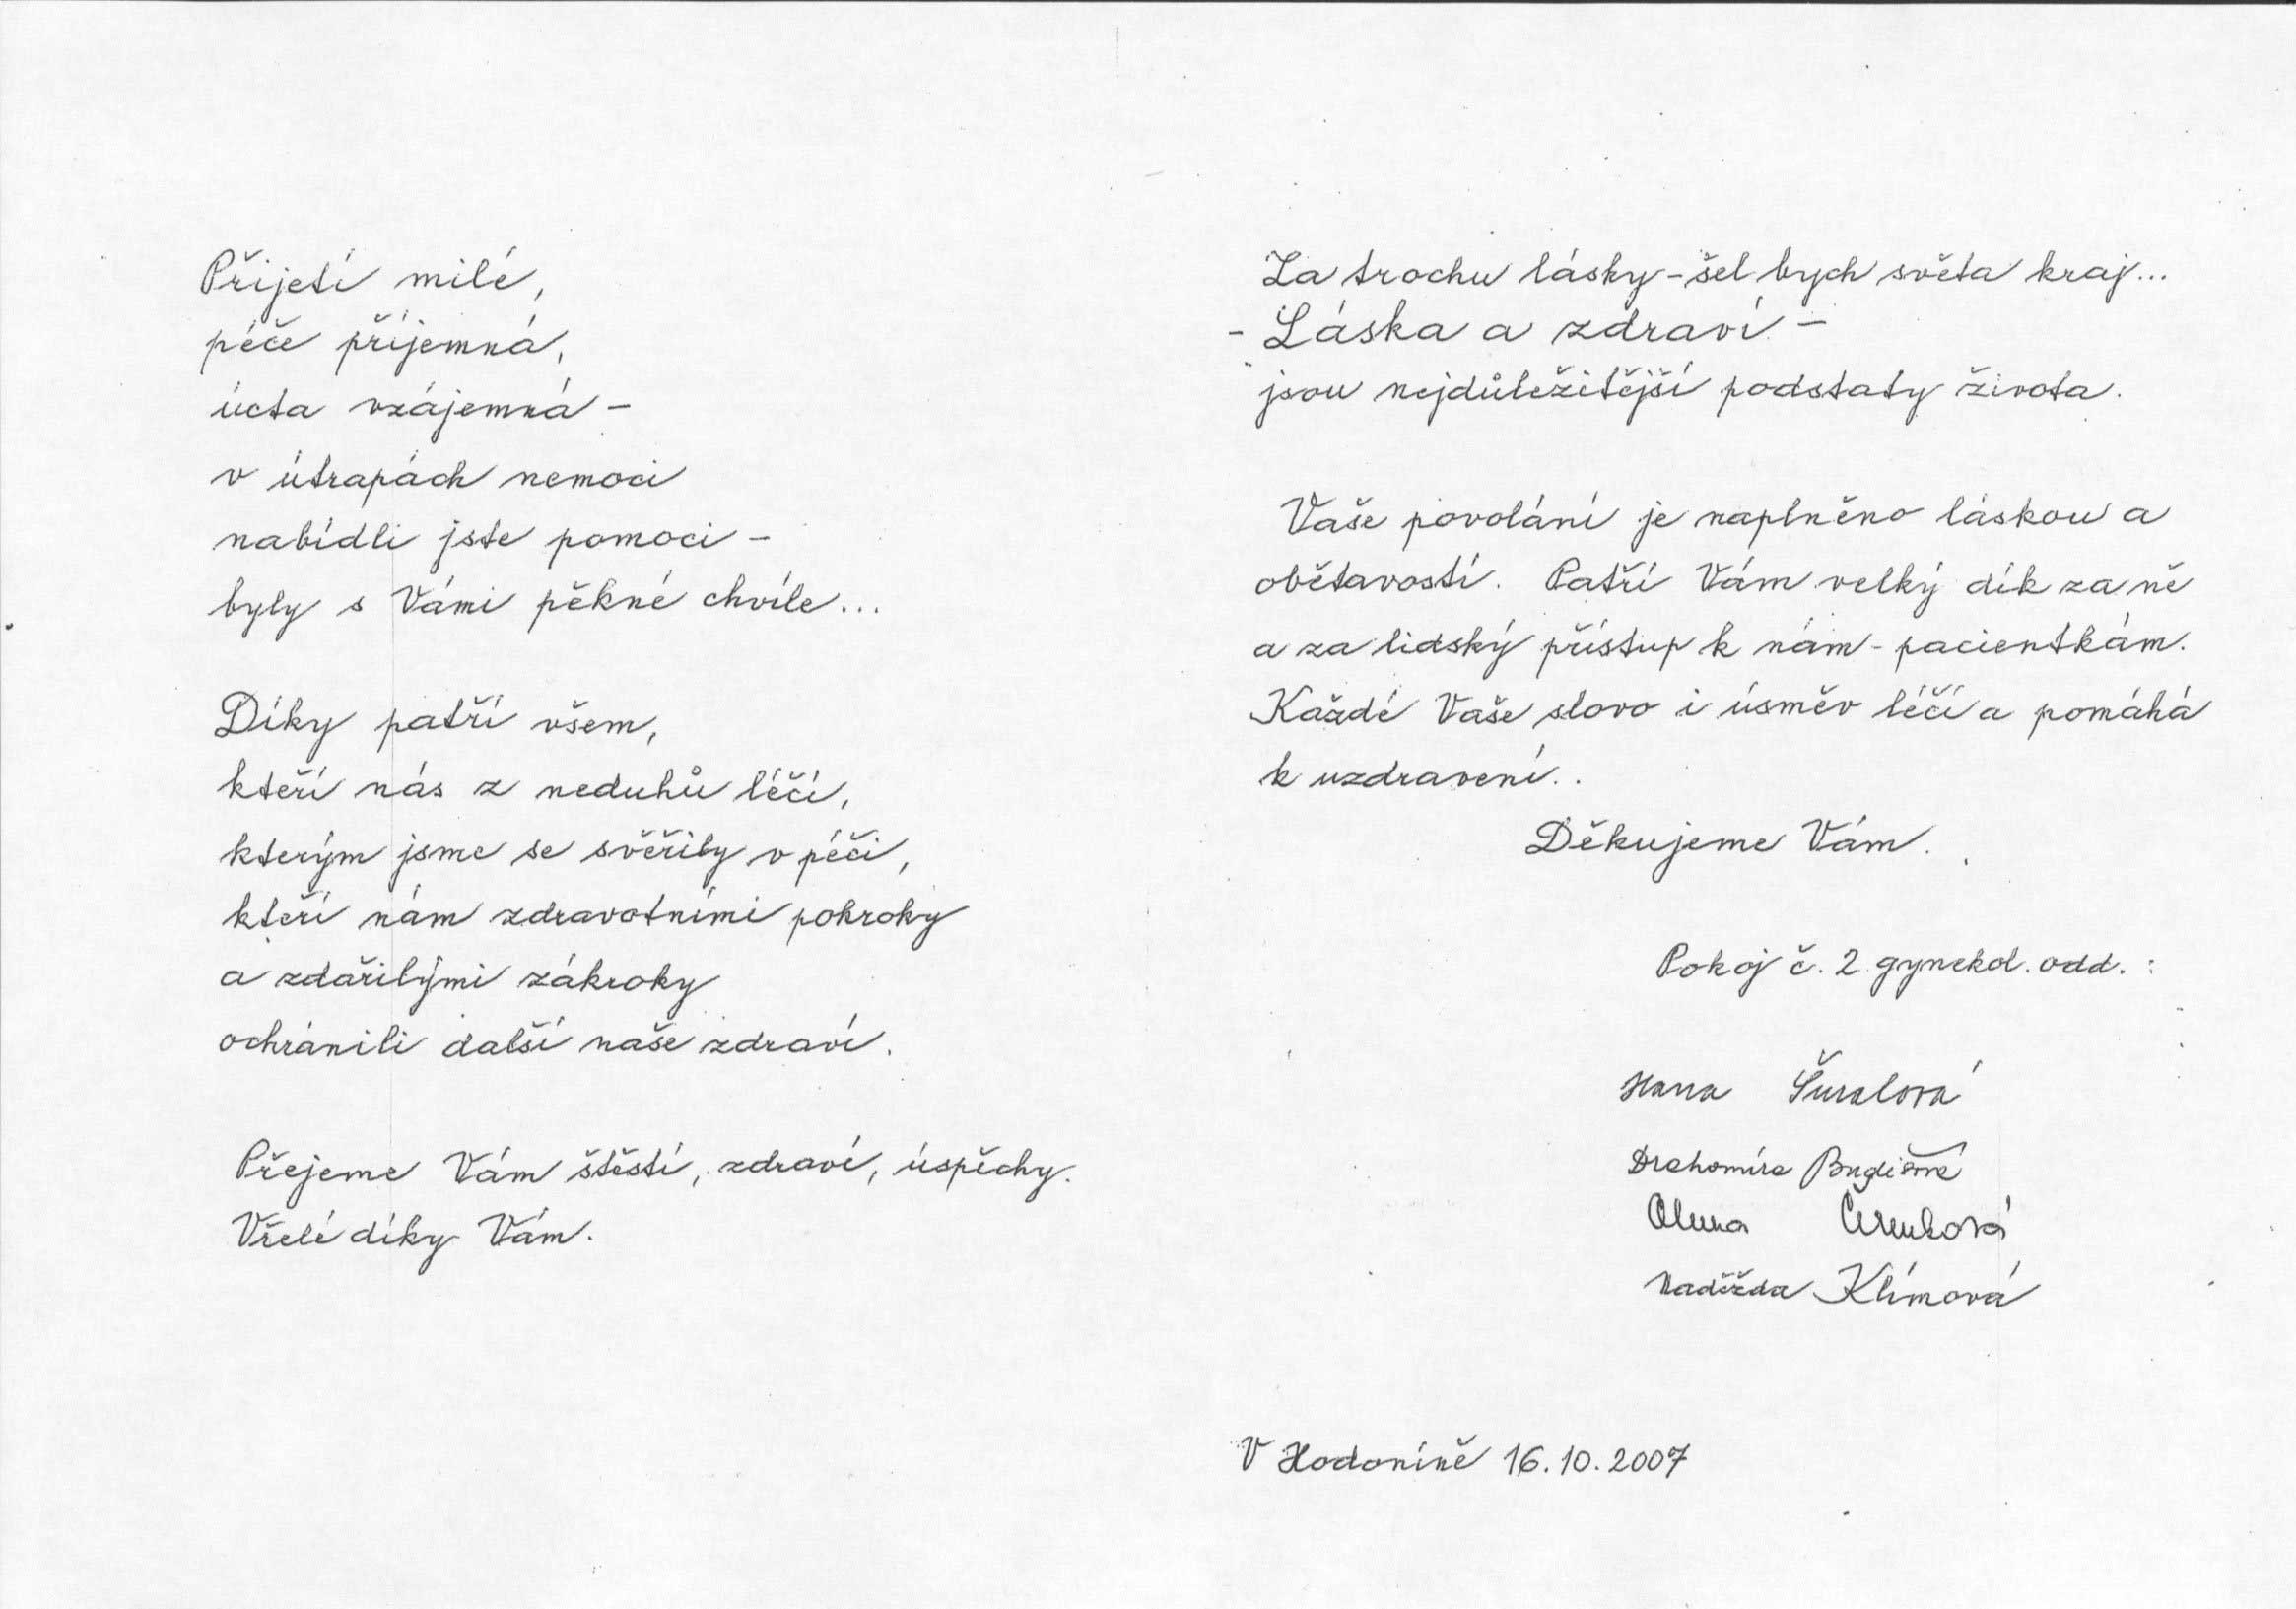 Přijetí milé,
péče příjemná,
úcta vzájemná -
v útrapách nemoci
nabídli jste pomoci -
byly s Vámi pěkné chvíle...
Díky patří všem,
kteří nás z neduhů léčí,
kterým jsme se svěřily v péči,
kteří nám zdravotními pokroky
a zdařilými zákroky
ochránili další naše zdraví.
Přejeme Vám štěstí, zdraví, úspěchy.
Vřelé díky Vám.
Za trochu lásky - šel bych světa kraj...
- Láska a zdraví -
jsou nejdůležitější podstaty života.
Vaše povolání je naplněno láskou a
obětavostí. Patří Vám velký dík za ně
a za lidský přístup k nám - pacientkám.
Každé Vaše slovo i úsměv léčí a pomáhá
k uzdravení..
Děkujeme Vám.
Pokoj č. 2 gynekol. odd. :
Hana Šuralová
Drahomíra
Naděžda Klímová
V Hodoníně 16.10.2007